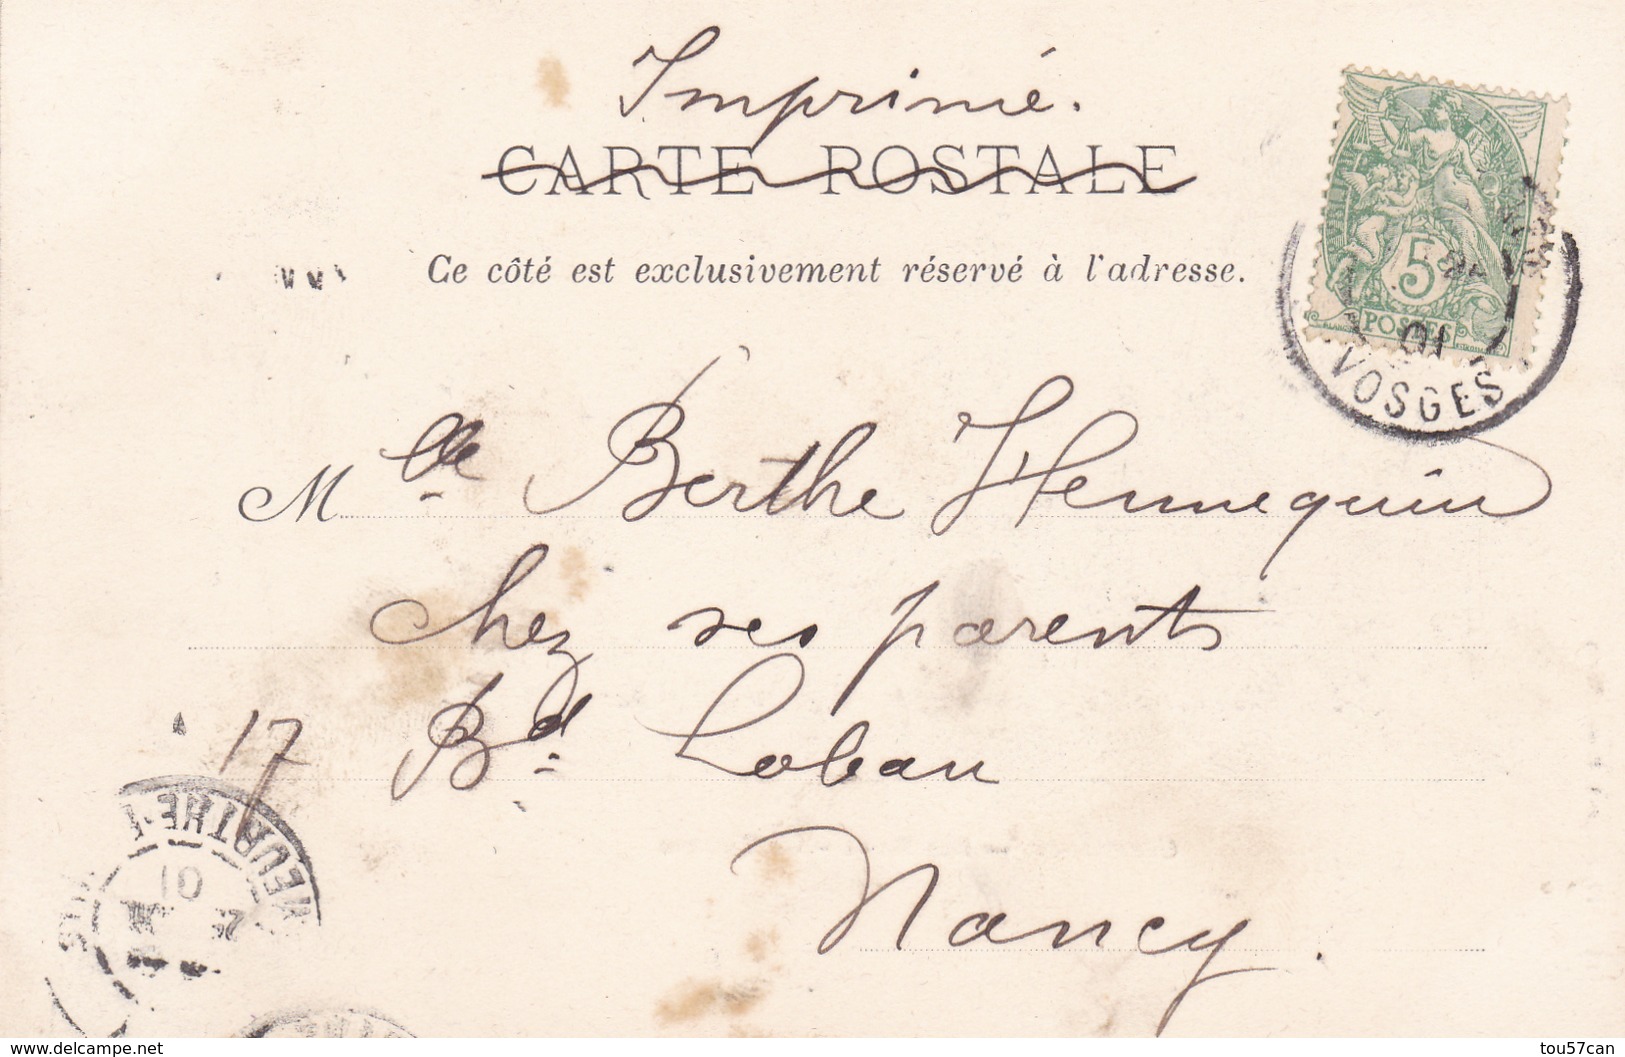 Imprimé.
CARTE POSTALE
Ce côté est exclusivement réservé à l'adresse.
5
POSTES
01
VOSGES
Mlle Berthe Hennequin
Chez ses parents
17 Bd. Lobau
Nancy.
MEURTHE
01
www.delcampe.net
tou57can